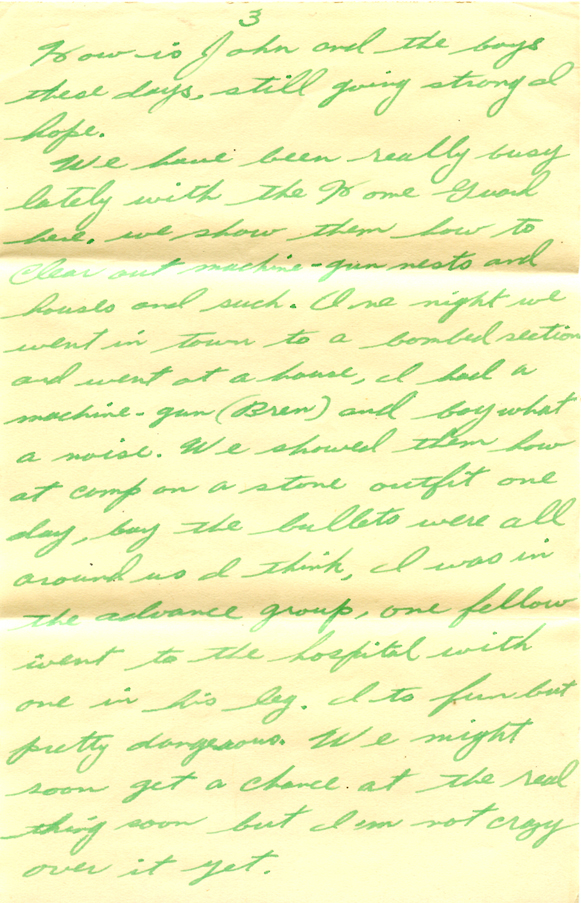 3
How is John and the boys
these days, still going strong I
hope.
We have been really busy
lately with the Home Guard
here. we show them how to
clear out machine-gun nests and
houses and such. One night we
went in town to a bombed section
and went at a house, I had a
machine-gun (Bren) and boy what
a noise. We showed them how
at camp on a stone outfit one
day, boy the bullets were all
around us I think, I was in
the advance group, one fellow
went to the hospital with
one in his leg. I to fun but
pretty dangerous. We might
soon get a chance at the real
thing soon but I'm not crazy
over it yet.